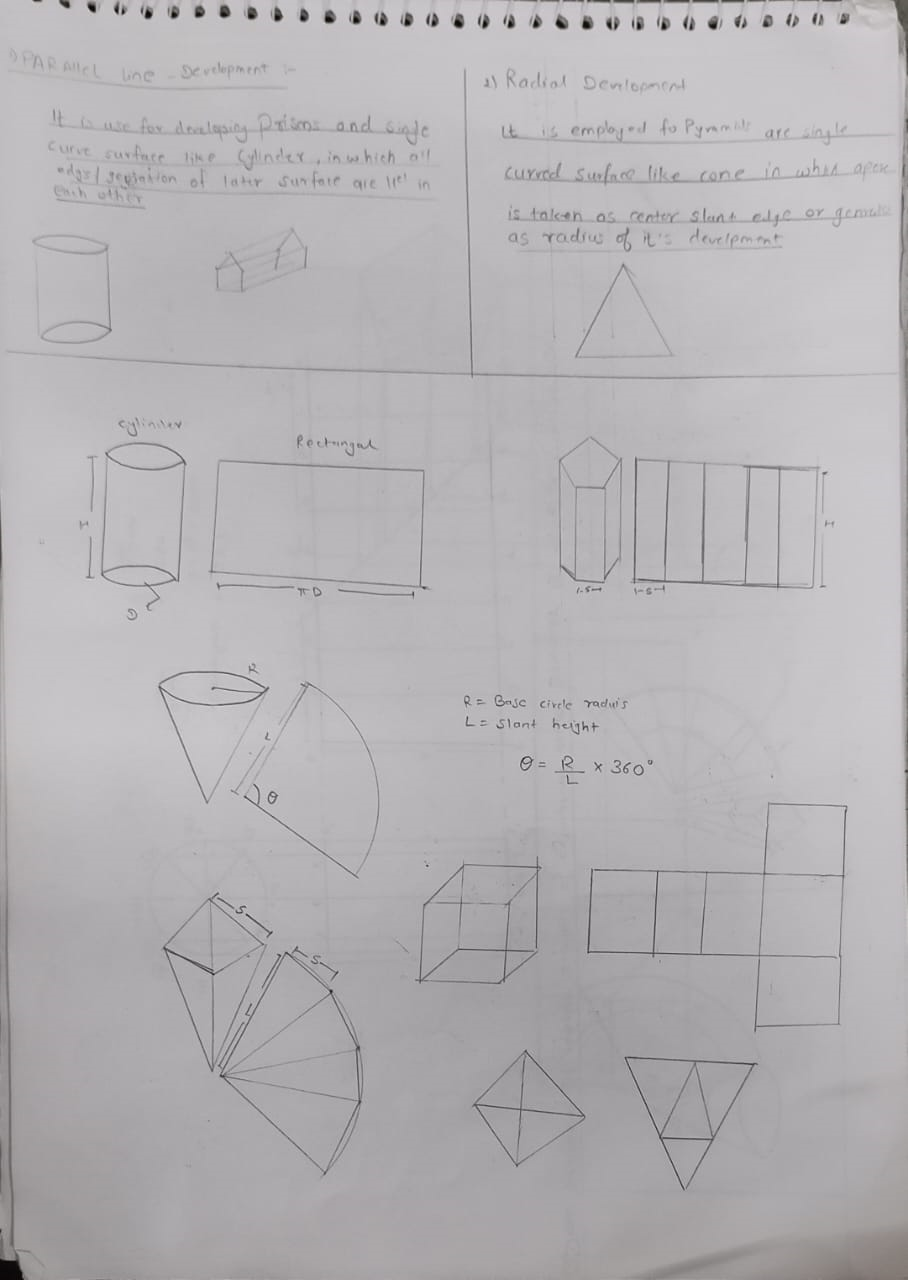 1) PARAllel line - Development :-
It is use for developing Prisms and single
curve surface like Cylinder, in which all
edges/ of later surface are lle' in
each other
2) Radial Development
It is employed fo Pyramids are single
curved surface like cone in when apex
is taken as center slant edge or
as radius of it's develpment
Cylinder
Rectangal
H
D
πD
H
1-S-1
1-S-1
R
L
θ
R = Base circle raduis
L = Slant height
θ = R/L × 360°
S
S
L